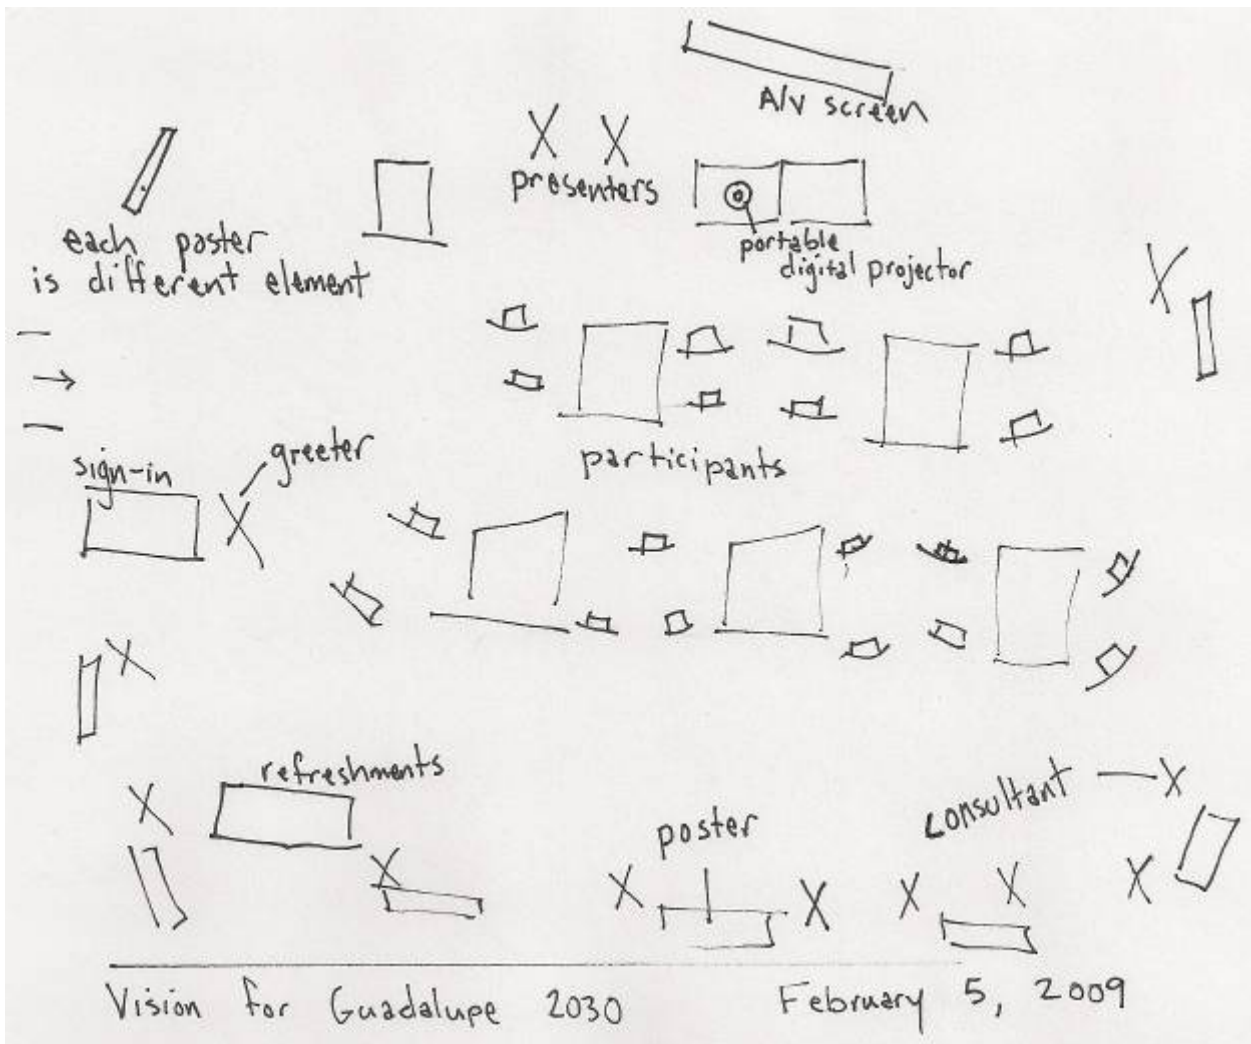 A/V screen
presenters
portable
digital projector
each poster
is different element
greeter
sign-in
participants
refreshments
consultant
poster
Vision for Guadalupe 2030
February 5, 2009